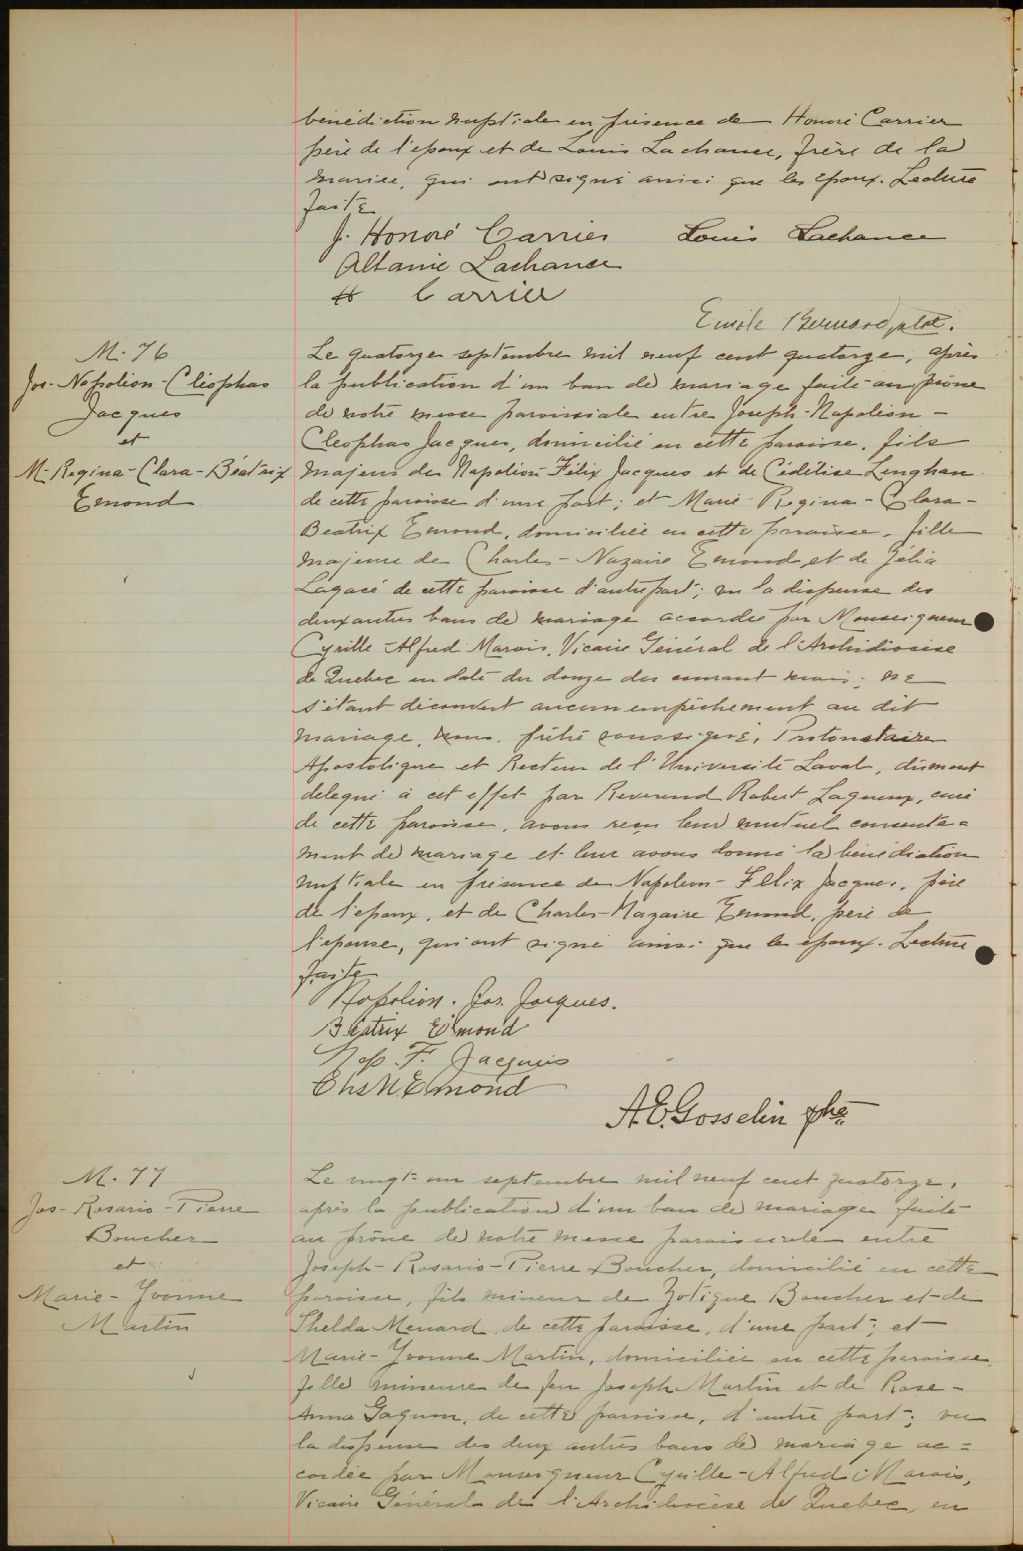 bénédiction nuptiale en présence de Honoré Carrier
père de l'époux et de Louis Lachance, frère de la
mariée, qui ont signé ainsi que les époux. Lecture
faite
J. Honoré Carrier Louis Lachance
Altanie Lachance
H Carrier
Emile Bernard, ptre.
M. 76
Jos-Napoléon-Cléophas
Jacques
et
M-Regina-Clara-Béatrix
Emond
Le quatorze septembre mil neuf cent quatorze, après
la publication d'un ban de mariage faite au prône
de notre messe paroissiale entre Joseph-Napoléon-
Cléophas Jacques, domicilié en cette paroisse, fils
majeur de Napoléon-Félix Jacques et de Cédélise Lenghan
de cette paroisse d'une part; et Marie-Regina-Clara-
Beatrix Emond, domiciliée en cette paroisse, fille
majeure de Charles-Nazaire Emond et de Zélia
Lagacé de cette paroisse d'autre part; vu la dispense des
deux autres bans de mariage accordée par Monseigneur
Cyrille-Alfred Marois, Vicaire Général de l'Archidiocèse
de Quebec en date du douze du courant mois; ne
s'étant découvert aucun empêchement au dit
mariage, nous, prêtre soussigné, Protonotaire
Apostolique et Recteur de l'Université Laval, dûment
delegué à cet effet par Reverend Robert Lagueux, curé
de cette paroisse, avons reçu leur mutuel consente=
ment de mariage et leur avons donné la bénédiction
nuptiale en présence de Napoléon-Félix Jacques, père
de l'époux, et de Charles-Nazaire Emond, père de
l'épouse, qui ont signé ainsi que les époux. Lecture
faite
Napoléon. Jos. Jacques.
Béatrix Emond
Nap. F. Jacques
Chs N. Emond
A. E. Gosselin ptre
M. 77
Jos-Rosario-Pierre
Boucher
et
Marie-Yvonne
Martin
Le vingt-un septembre mil neuf cent quatorze,
après la publication d'un ban de mariage faite
au prône de notre messe paroissiale entre
Joseph-Rosario-Pierre Boucher, domicilié en cette
paroisse, fils mineur de Zotique Boucher et de
Thelda Menard de cette paroisse, d'une part; et
Marie-Yvonne Martin, domiciliée en cette paroisse,
fille mineure de feu Joseph Martin et de Rose-
Anna Gagnon, de cette paroisse, d'autre part; vu
la dispense des deux autres bans de mariage ac=
cordée par Monseigneur Cyrille-Alfred Marois,
Vicaire Général de l'Archidiocèse de Quebec, en